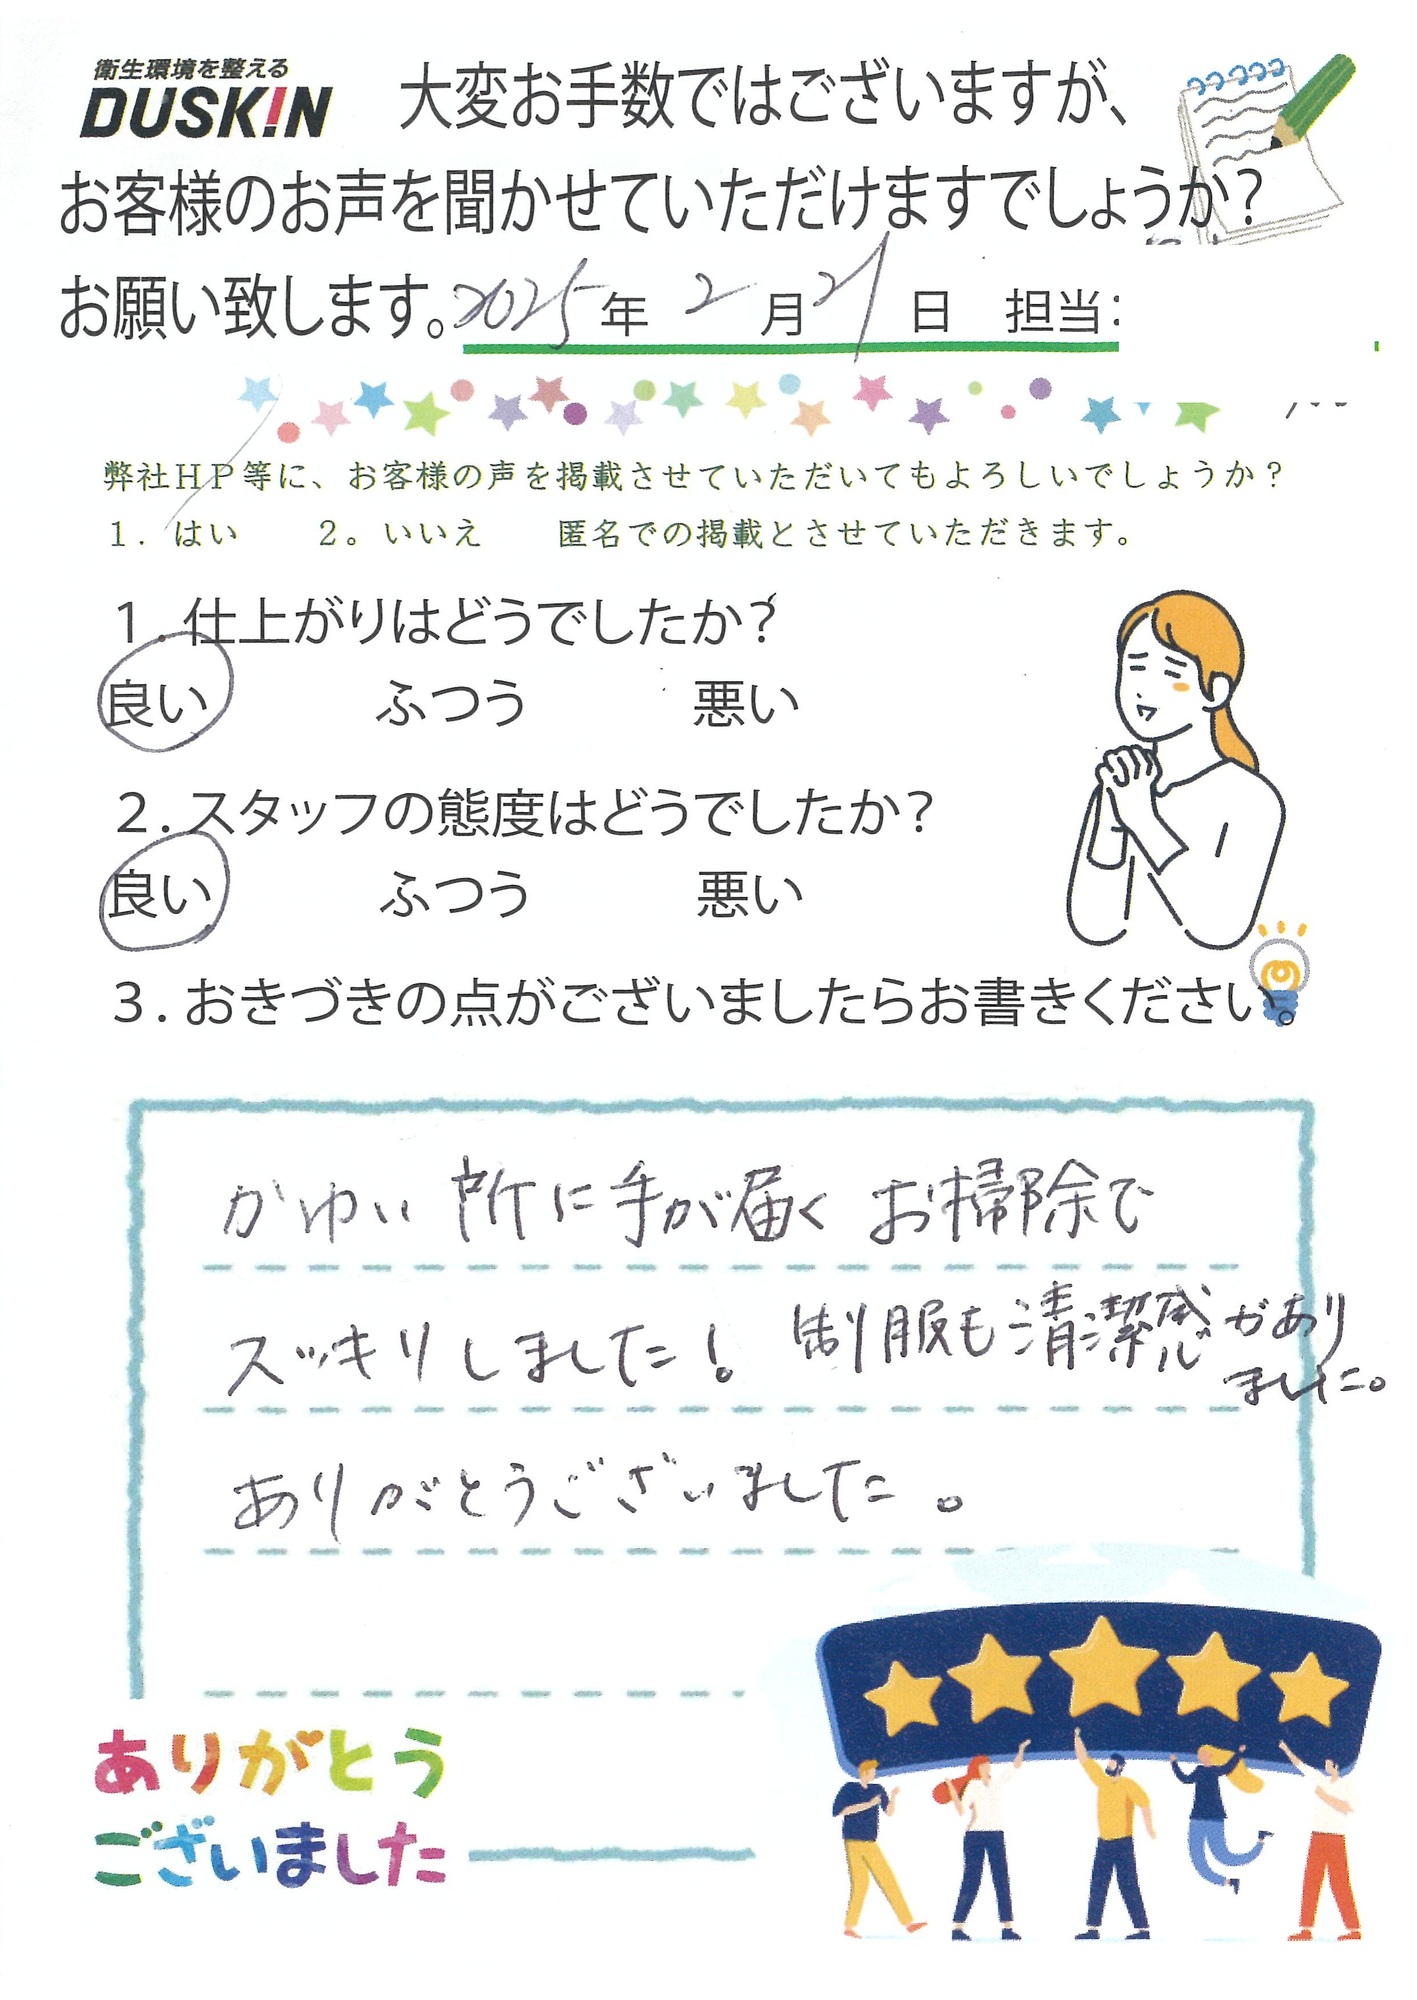 衛生環境を整える
DUSKIN
大変お手数ではございますが、
お客様のお声を聞かせていただけますでしょうか？
お願い致します。2025年 2月21日 担当：
弊社ＨＰ等に、お客様の声を掲載させていただいてもよろしいでしょうか？
１．はい　２。いいえ　匿名での掲載とさせていただきます。
１．仕上がりはどうでしたか？
良い　ふつう　悪い
２．スタッフの態度はどうでしたか？
良い　ふつう　悪い
３．おきづきの点がございましたらお書きください。
かゆい所に手が届くお掃除で
スッキリしました！ 制服も清潔感があり
ました。
ありがとうございました。
ありがとう
ございました